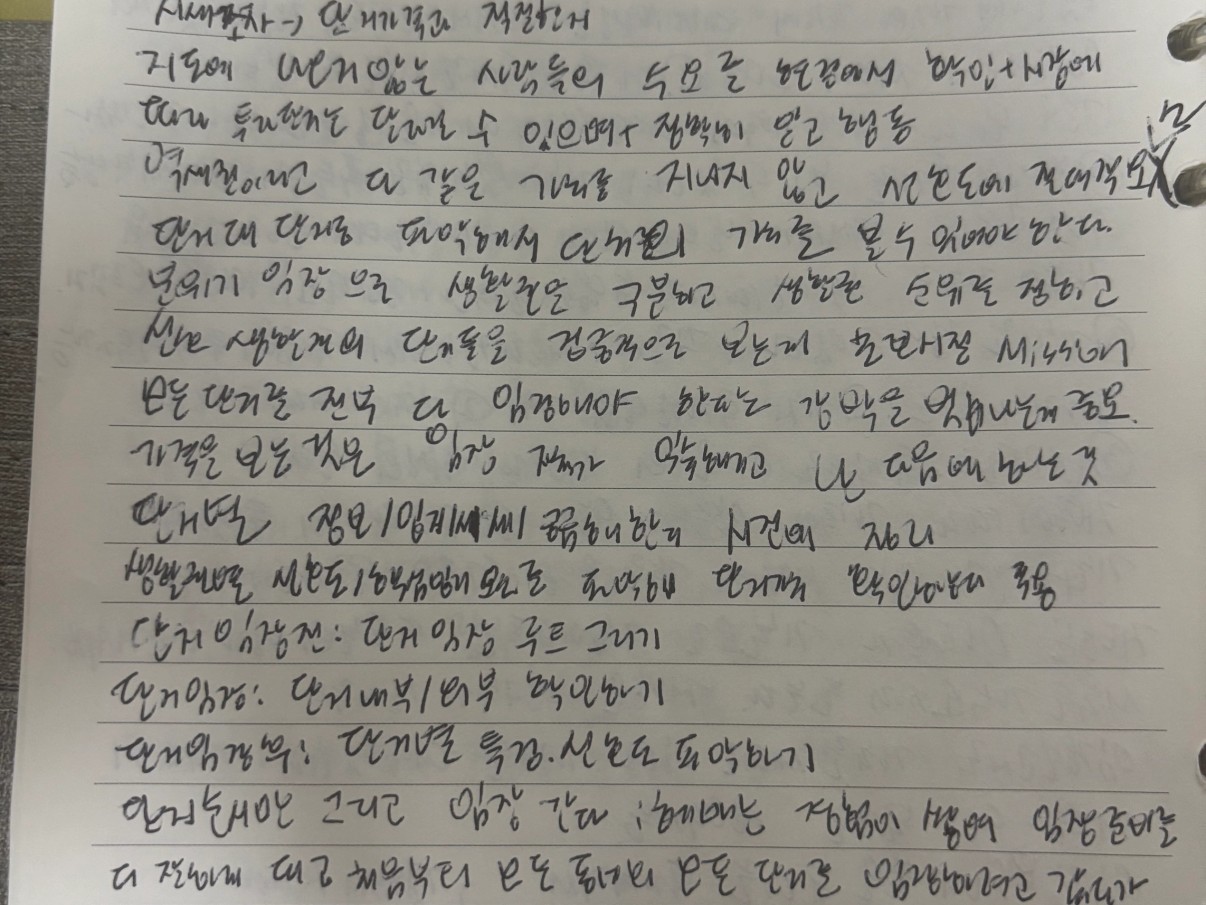 시세조사 → 단지가격과 적절한지
지도에 나오지 않는 사람들의 수요를 현장에서 확인+시장에
따라 투자판단은 달라질 수 있으며+ 정확히 알고 행동
역세권이라고 다 같은 가치를 지니지 않고 선호도에 절대적 X
단지 대 단지로 파악해서 단지의 가치를 볼 수 있어야 한다.
분위기 임장으로 생활권을 구분하고 생활권 순위를 정하고
선호 생활권의 단지들을 집중적으로 보는게 초보시절 Mission
모든 단지를 전부 다 임장해야 한다는 강박을 벗어나는게 중요.
가격을 보는 것은 임장 자체가 익숙해지고 난 다음에 하는 것
단지별 정보/입지/시세/ 시간에 정리
생활권별 선호도/ 파악해 단지
단지임장전: 단지임장 루트그리기
단지임장: 단지내부/외부 확인하기
단지임장후: 단지별 특징.선호도 파악하기
단지순서만 그리고 임장 간다 : 헤매는 경험이 쌓여 임장준비를
더 잘하게 되고 처음부터 모든 동네의 모든 단지를 임장하려고 하다가